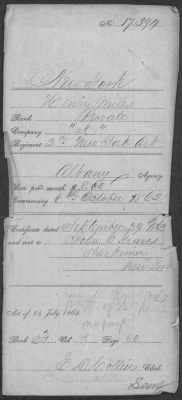 No. 17,394
New York
Henry Miles
Rank Private
Company "K"
Regiment 2nd New York Art
Albany Agency
Rate per month, $8.00
Commencing 6th October 1862
Certificate dated September 29 1863
and sent to John C.
Herkimer
New York
Act of 14 July, 1862.
Book A Vol. 2 Page 80
E. D. Collins Clerk.